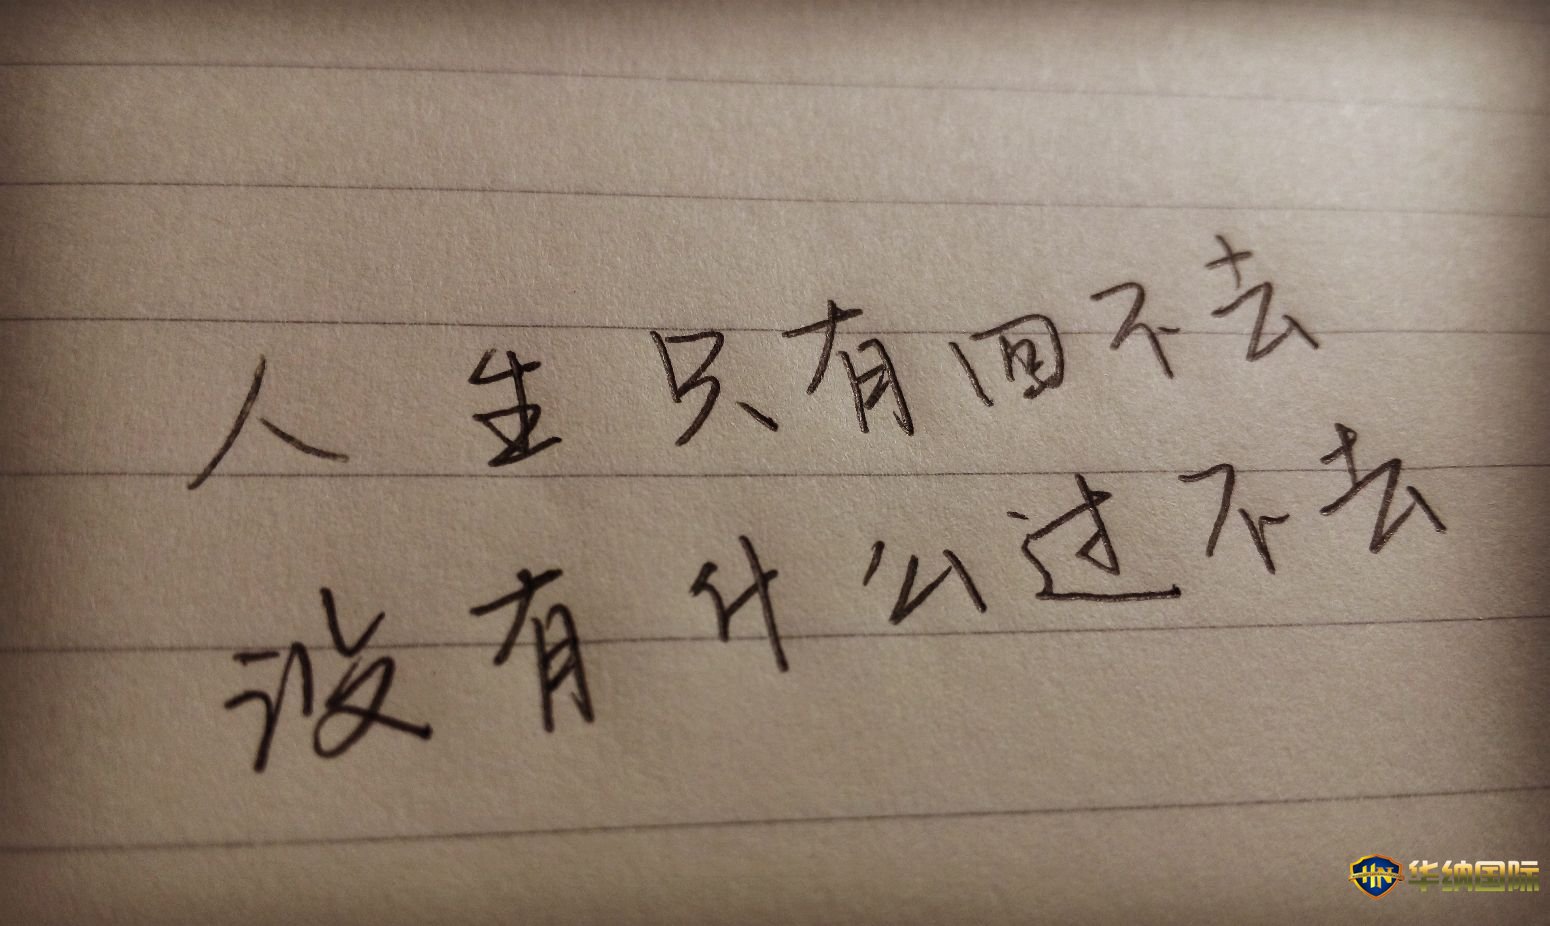 人生只有回不去
没有什么过不去
HN 华纳国际